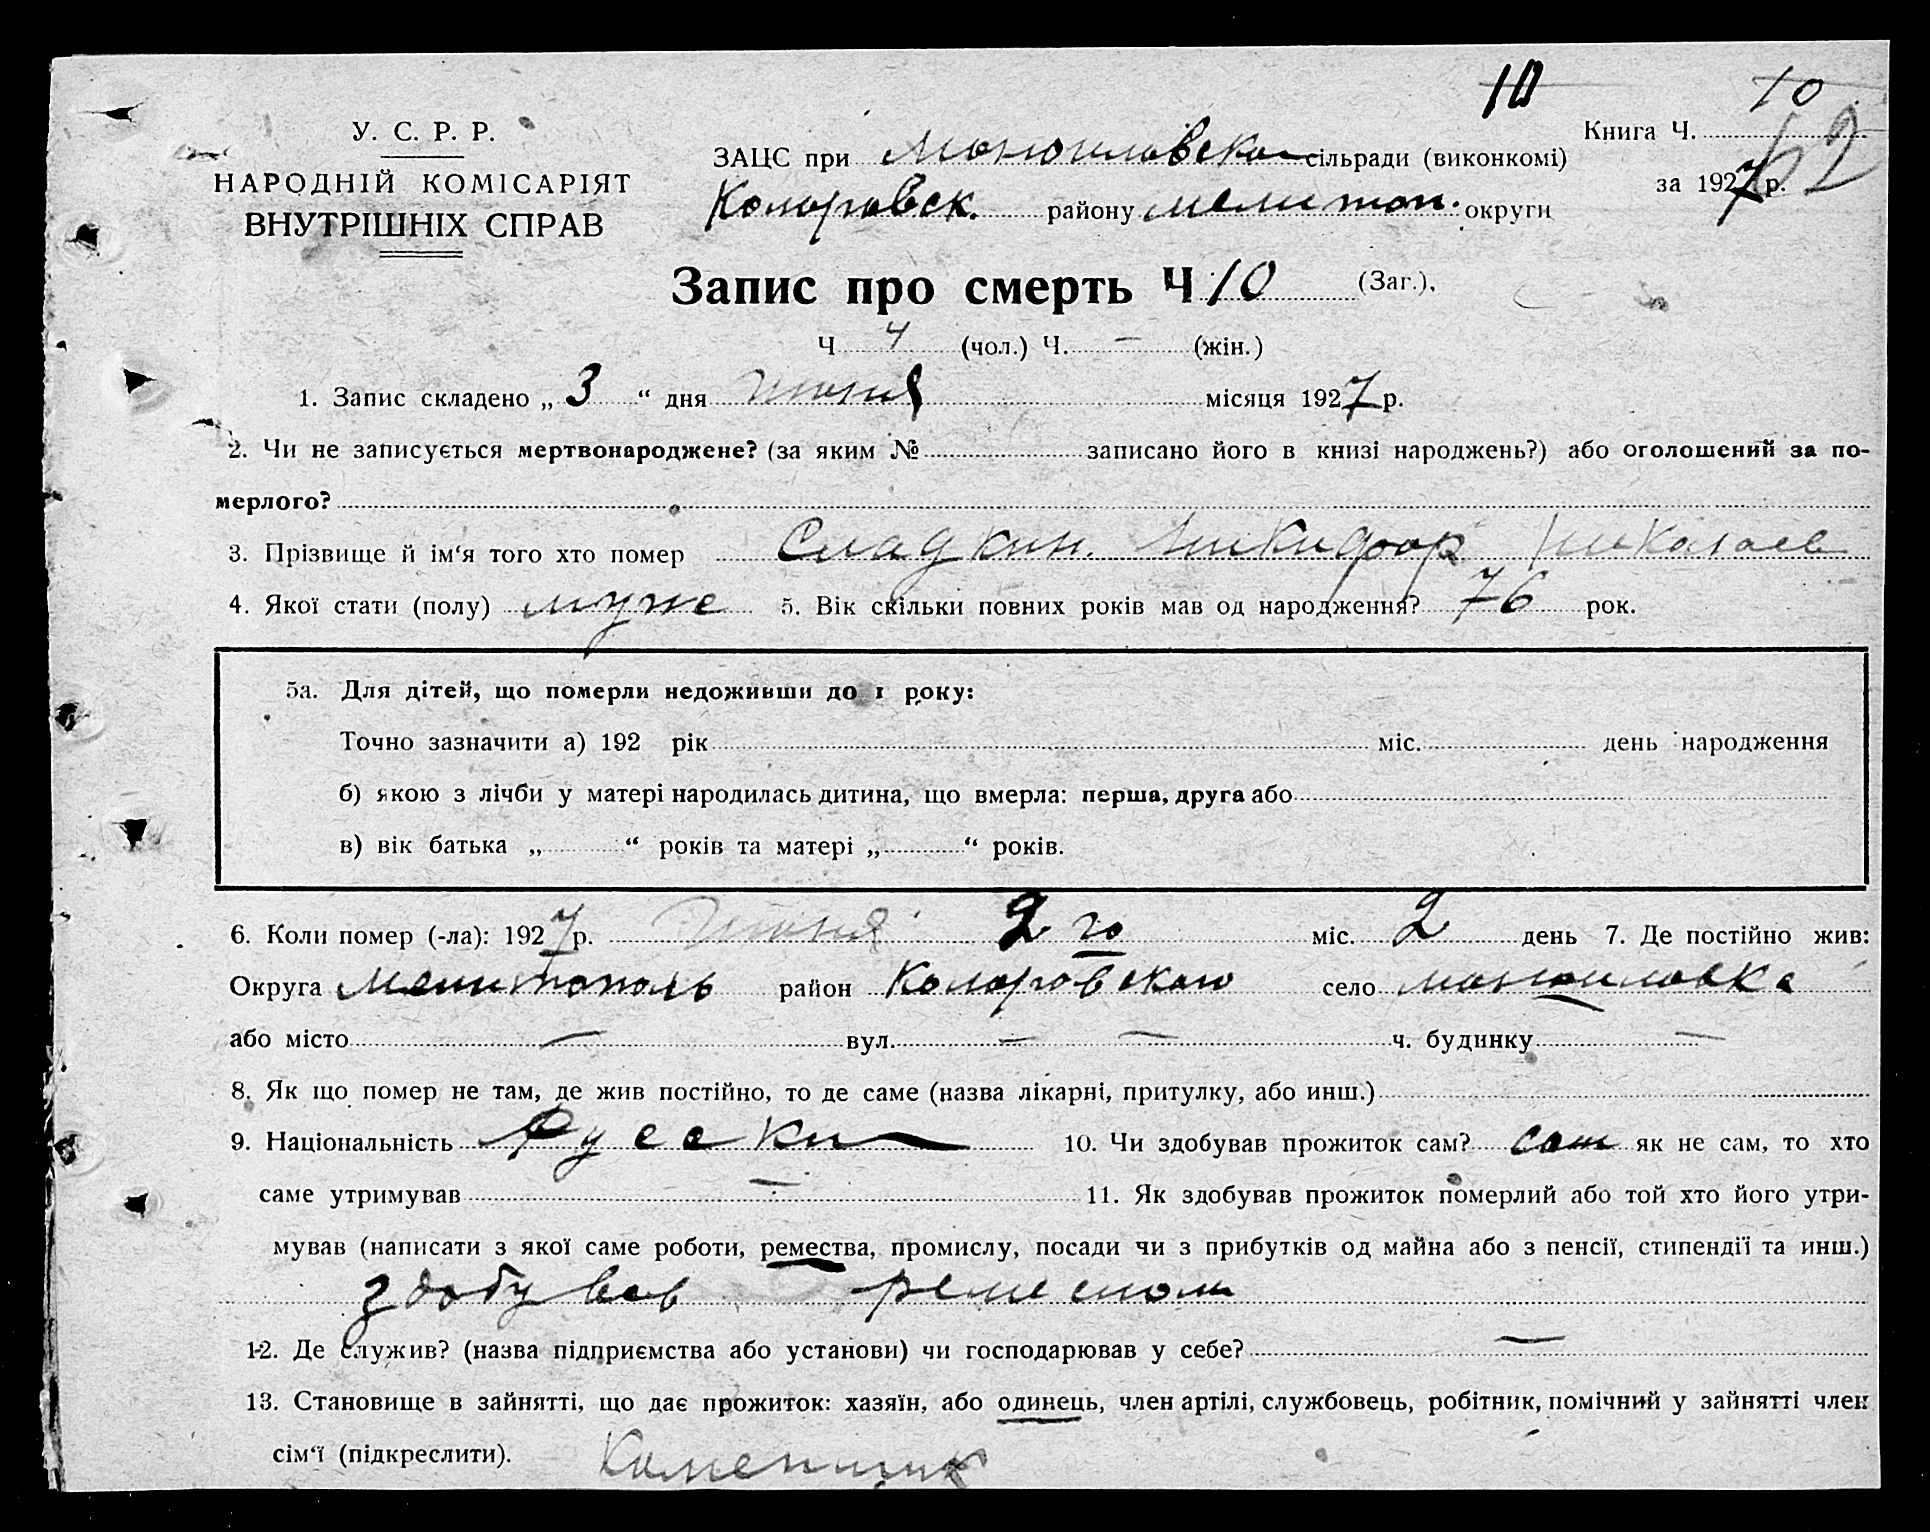 10 10
У. С. Р. Р.
Книга Ч. 62
НАРОДНІЙ КОМІСАРІЯТ
ВНУТРІШНІХ СПРАВ
ЗАЦС при сільради (виконкомі)
за 1927 р.
району мелитоп. округи
Запис про смерть Ч 10 (Заг.).
Ч 4 (чол.) Ч. — (жін.)
1. Запис складено „ 3 “ дня июня місяця 1927 р.
2. Чи не записується мертвонароджене? (за яким № записано його в книзі народжень?) або оголошений за по-
мерлого?
3. Прізвище й ім‘я того хто помер Сладкин. Никифор Николаев
4. Якої стати (полу) муже 5. Вік скільки повних років мав од народження? 76 рок.
5а. Для дітей, що померли недоживши до 1 року:
Точно зазначити а) 192 рік міс. день народження
б) якою з лічби у матері народилась дитина, що вмерла: перша, друга або
в) вік батька „ “ років та матері „ “ років.
6. Коли помер (-ла): 1927 р. июня 2 го міс. 2 день 7. Де постійно жив:
Округа Мелитополь район Коларовского село маноиловка
або місто — вул. — — ч. будинку —
8. Як що помер не там, де жив постійно, то де саме (назва лікарні, притулку, або инш.)
9. Національність Русски 10. Чи здобував прожиток сам? сам як не сам, то хто
саме утримував — 11. Як здобував прожиток померлий або той хто його утри-
мував (написати з якої саме роботи, ремества, промислу, посади чи з прибутків од майна або з пенсії, стипендії та инш.)
здобував ремеслом
12. Де служив? (назва підприємства або установи) чи господарював у себе? —
13. Становище в зайнятті, що дає прожиток: хазяїн, або одинець, член артілі, службовець, робітник, помічний у зайнятті член
сім‘ї (підкреслити). Каменщик